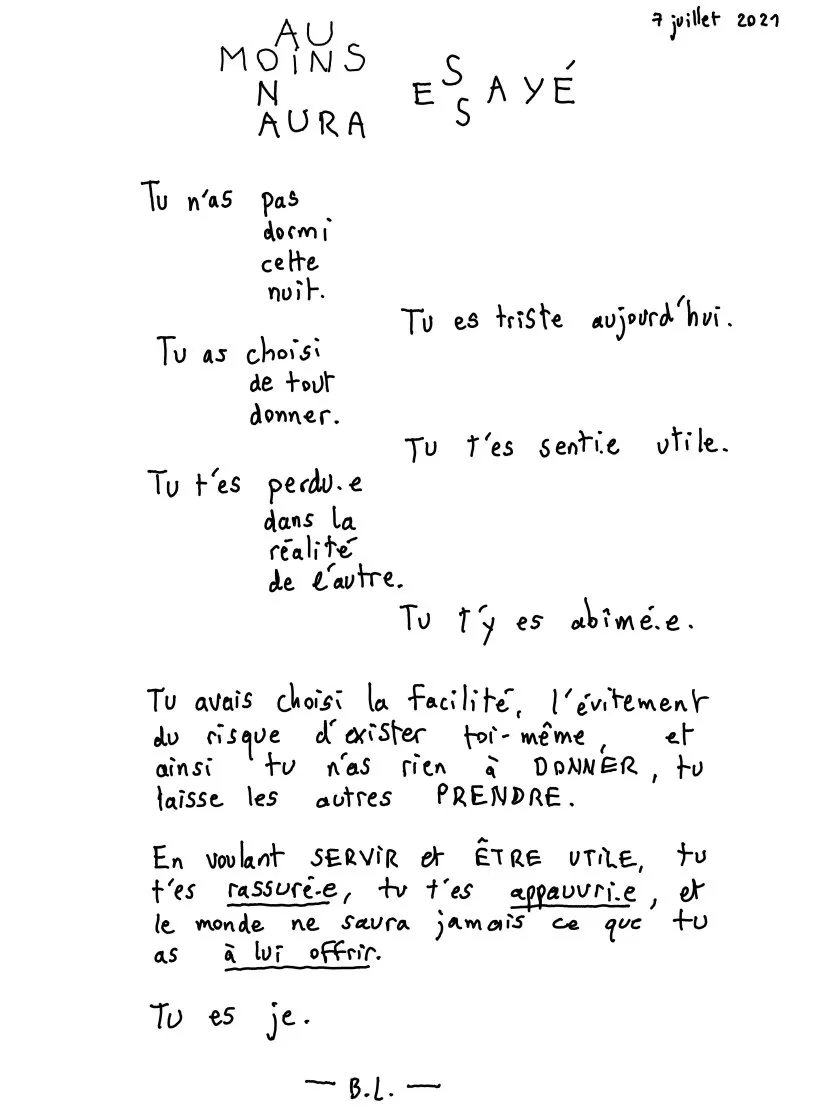 7 juillet 2021
AU
MOINS
N
AURA ESSAYÉ
Tu n'as pas
dormi
cette
nuit.
Tu es triste aujourd'hui.
Tu as choisi
de tout
donner.
Tu t'es senti.e utile.
Tu t'es perdu.e
dans la
réalité
de l'autre.
Tu t'y es abîmé.e.
Tu avais choisi la facilité, l'évitement
du risque d'exister toi-même, et
ainsi tu n'as rien à DONNER, tu
laisse les autres PRENDRE.
En voulant SERVIR et ÊTRE UTILE, tu
t'es rassuré.e, tu t'es appauvri.e, et
le monde ne saura jamais ce que tu
as à lui offrir.
Tu es je.
— B.L. —